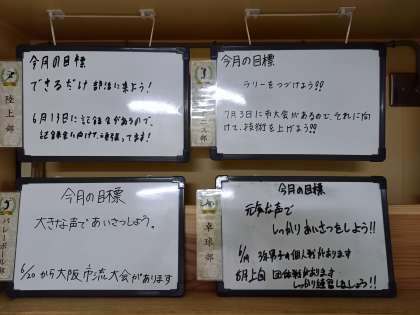 今月の目標
できるだけ部活に来よう!
6月19日に記録会があるので、
記録会に向けて頑張ってます!
陸上部
今月の目標
ラリーをつづけよう!!
7月3日に市大会があるので、それに向
けて、技術を上げよう!!
ス部
今月の目標
大きな声であいさつしよう。
6/20から大阪市流大会があります
バレーボール部
今月の目標
元気な声で
しっかりあいさつをしよう!!
男子の個人戦があります
8月上旬 団体戦があります
しっかり練習しましょう!!
卓球部